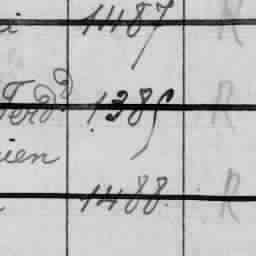 1487 R
Ferd^d 1385 R
ien
1488 R